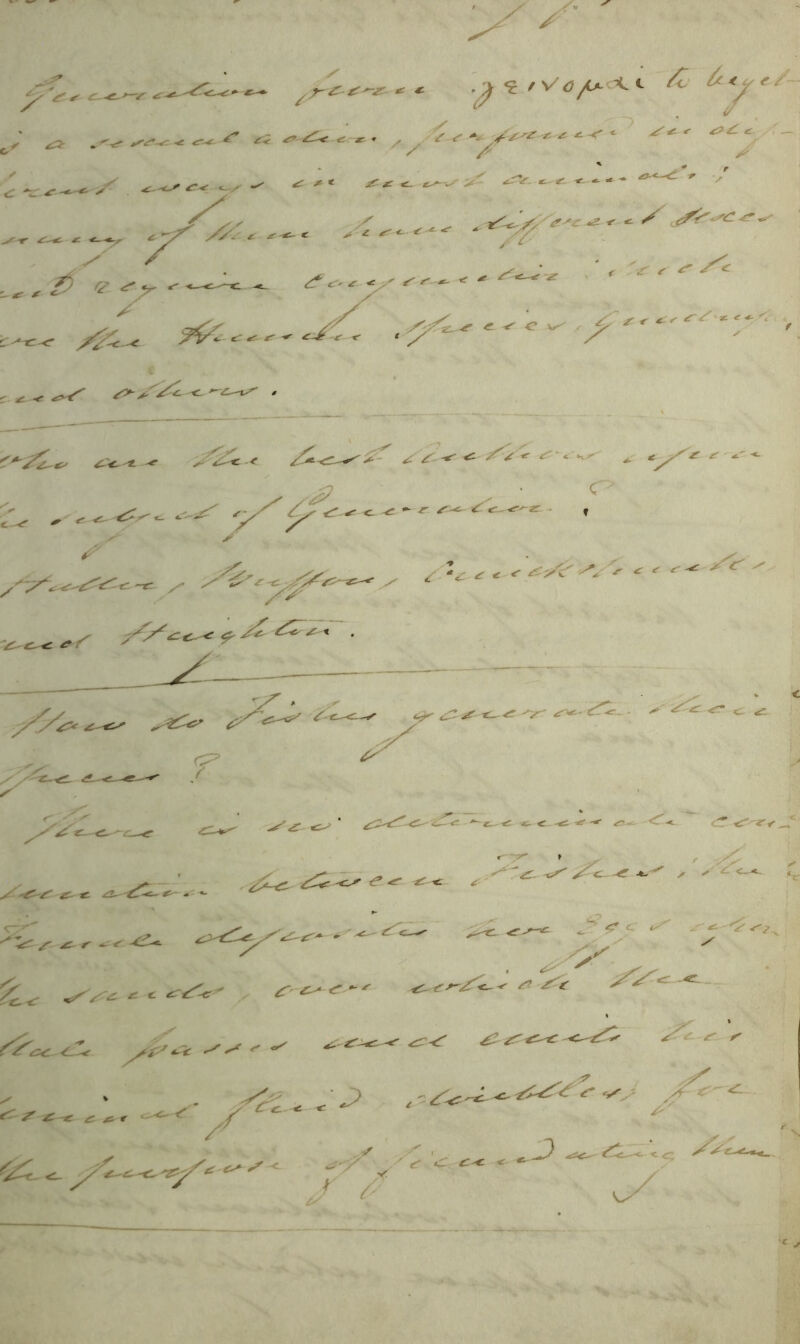 Generation from γεινομαι to beget
is a sexual action, performed in dif-
ferent ways in most animals;
many of them have different Sexes
and require conjunction: such
are the Human Species, Quadrupeds,
and others.
Who are the best Authors upon
the subject of Generation?
Haller, Buffon, Cruickshanks,
and Haughton.
How do Fishes generate their
Species?
There is no determinate con-
junction between Fishes; the
Female deposites her Eggs upon
the sands, over which the
Male passes and emits his
seminal fluid, for
the purpose of fecundating them